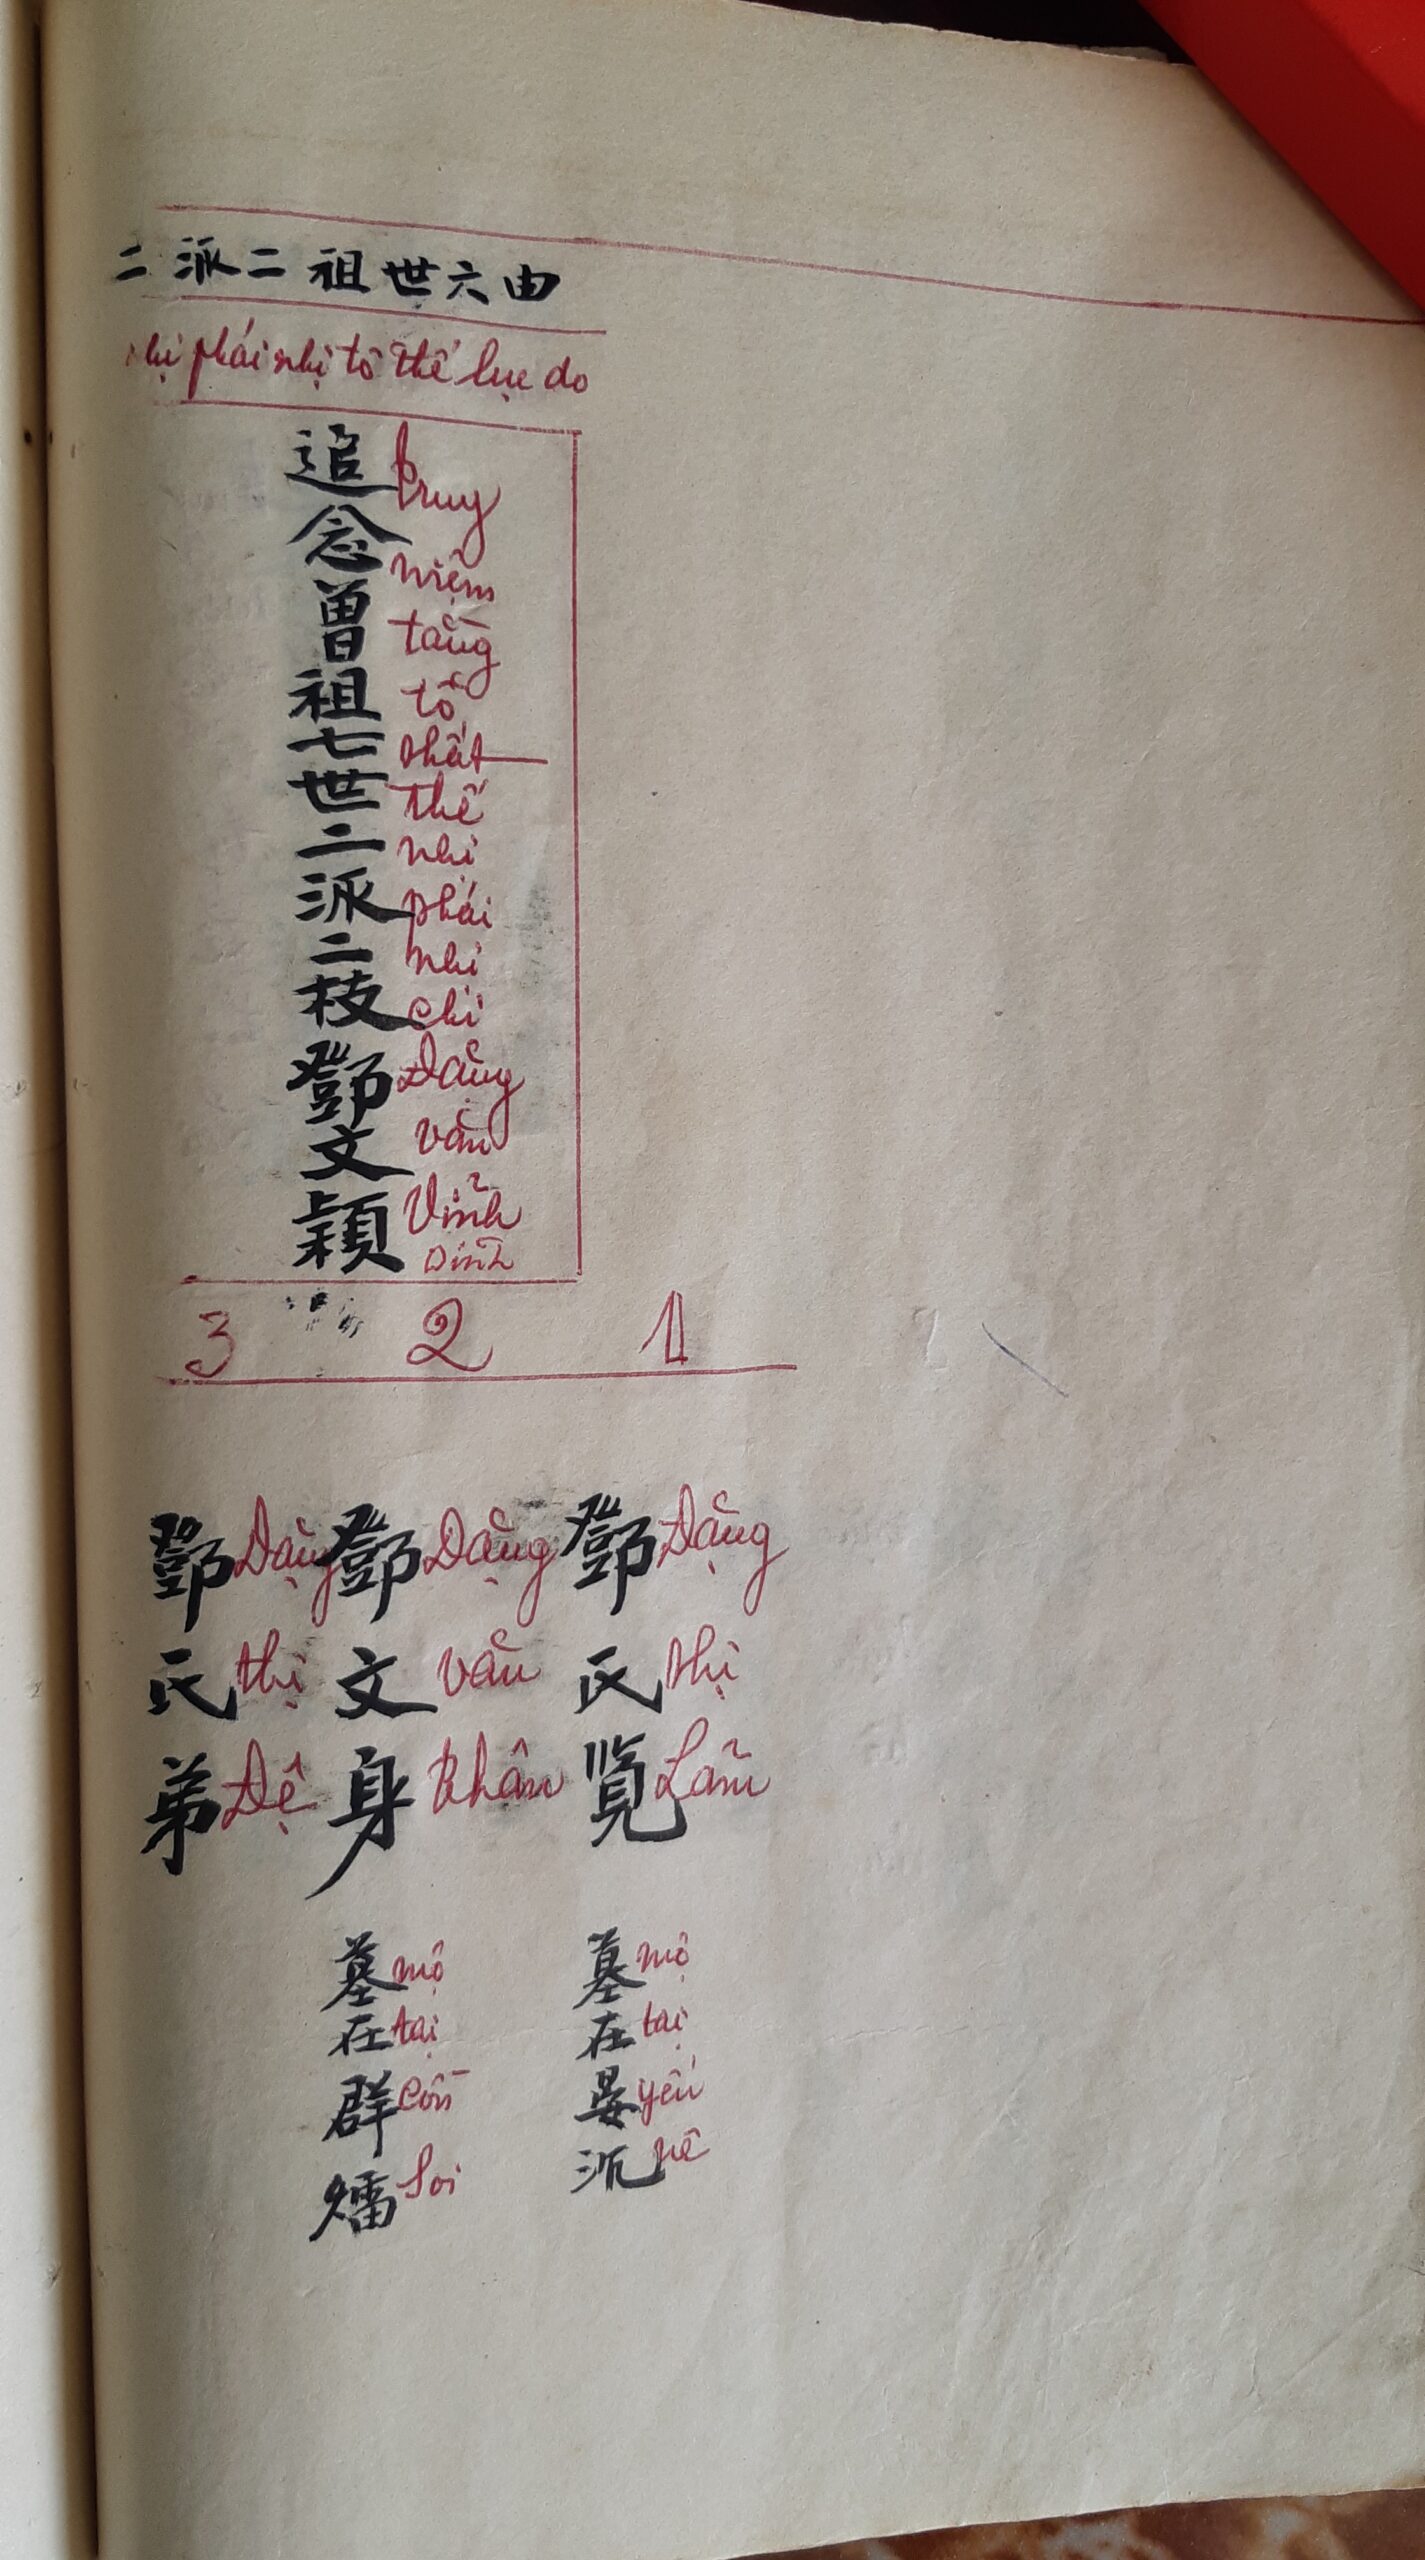 二派二祖世六由
nhị phái nhị tổ thế lục do
追念曾祖七世二派二枝鄧文穎
truy niệm tằng tổ thất thế nhị phái nhị chi Đặng văn Vĩnh
Dĩnh
1
2
3
鄧氏覧
Đặng thị Lãm
墓在晏派
mộ tại yến nê
鄧文身
Đặng văn thân
墓在群
mộ tại cồn soi
鄧氏弟
Đặng thị Đệ